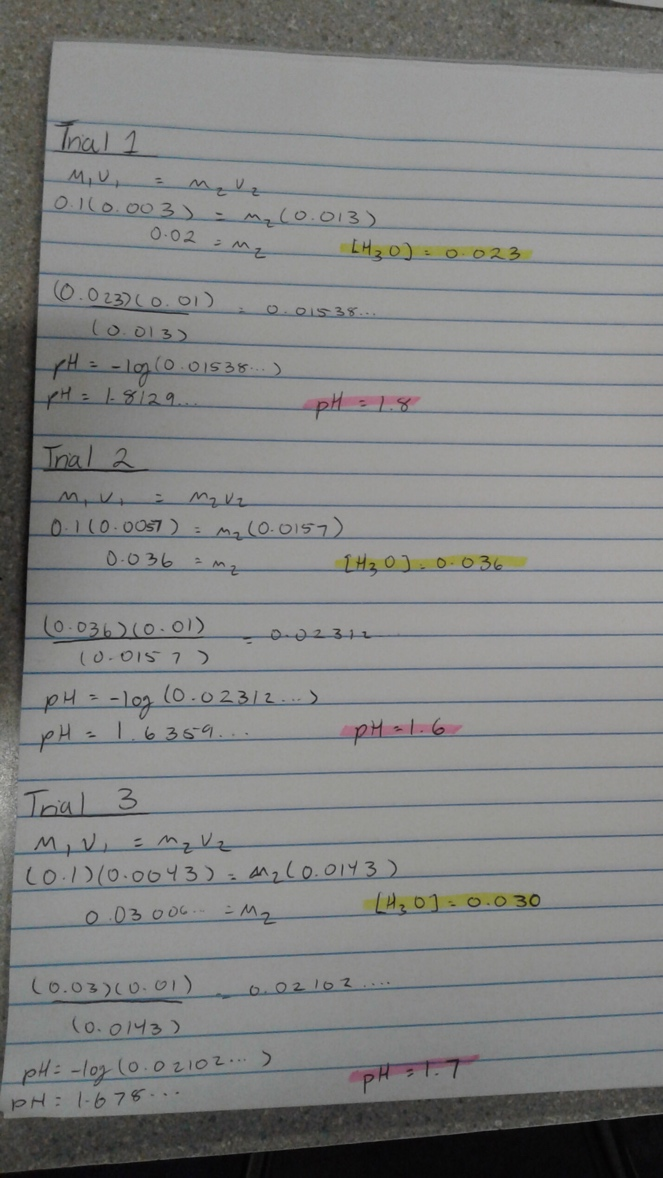 Trial 1
M₁V₁ = M₂V₂
0.1(0.003) = M₂(0.013)
0.02 = M₂ [H₃O] = 0.023
(0.023)(0.01) = 0.01538...
(0.013)
pH = -log(0.01538...)
pH = 1.8129... pH = 1.8
Trial 2
M₁V₁ = M₂V₂
0.1(0.0057) = M₂(0.0157)
0.036 = M₂ [H₃O] = 0.036
(0.036)(0.01) = 0.02312...
(0.0157)
pH = -log(0.02312...)
pH = 1.6359... pH = 1.6
Trial 3
M₁V₁ = M₂V₂
(0.1)(0.0043) = M₂(0.0143)
0.03006... = M₂ [H₃O] = 0.030
(0.03)(0.01) = 0.02102....
(0.0143)
pH = -log(0.02102...)
pH = 1.678... pH = 1.7